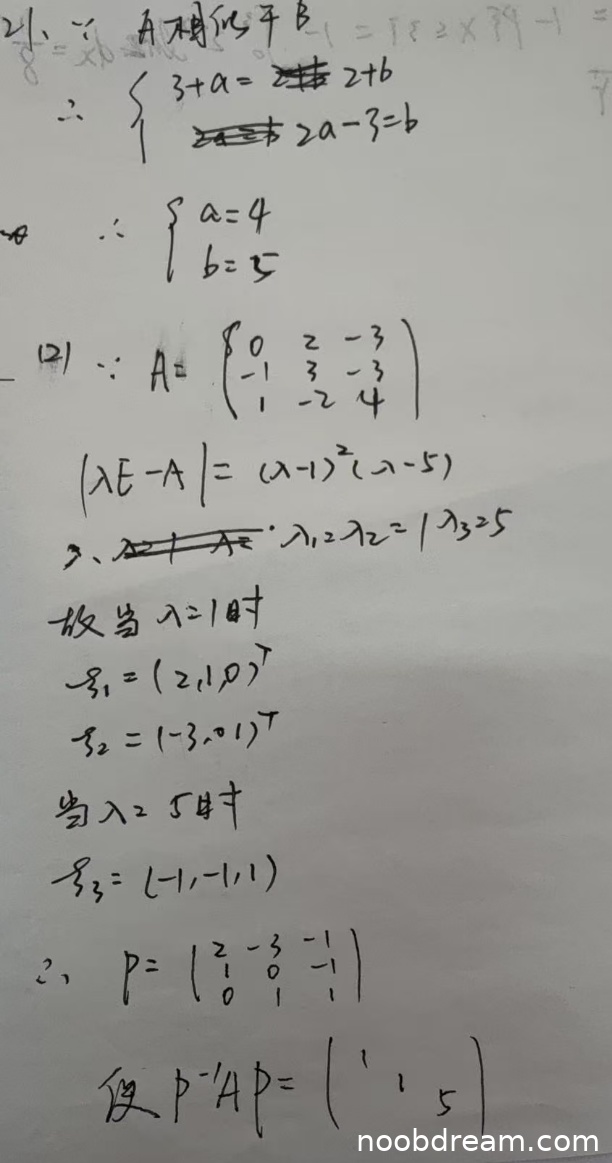 21、∵ A相似于B
∴ { 3+a = 2+b
2a-3=b
∴ { a=4
b=5
(2) ∵ A= ( 0 2 -3
-1 3 -3
1 -2 4 )
|λE-A| = (λ-1)²(λ-5)
∴ λ₁=λ₂=1 λ₃=5
故当 λ=1时
ξ₁ = (2,1,0)ᵀ
ξ₂ = (-3,0 1)ᵀ
当 λ= 5时
ξ₃ = (-1,-1,1)
∴ P= ( 2 -3 -1
1 0 -1
0 1 1 )
使 P⁻¹AP= ( 1
1
5 )
noobdream.com